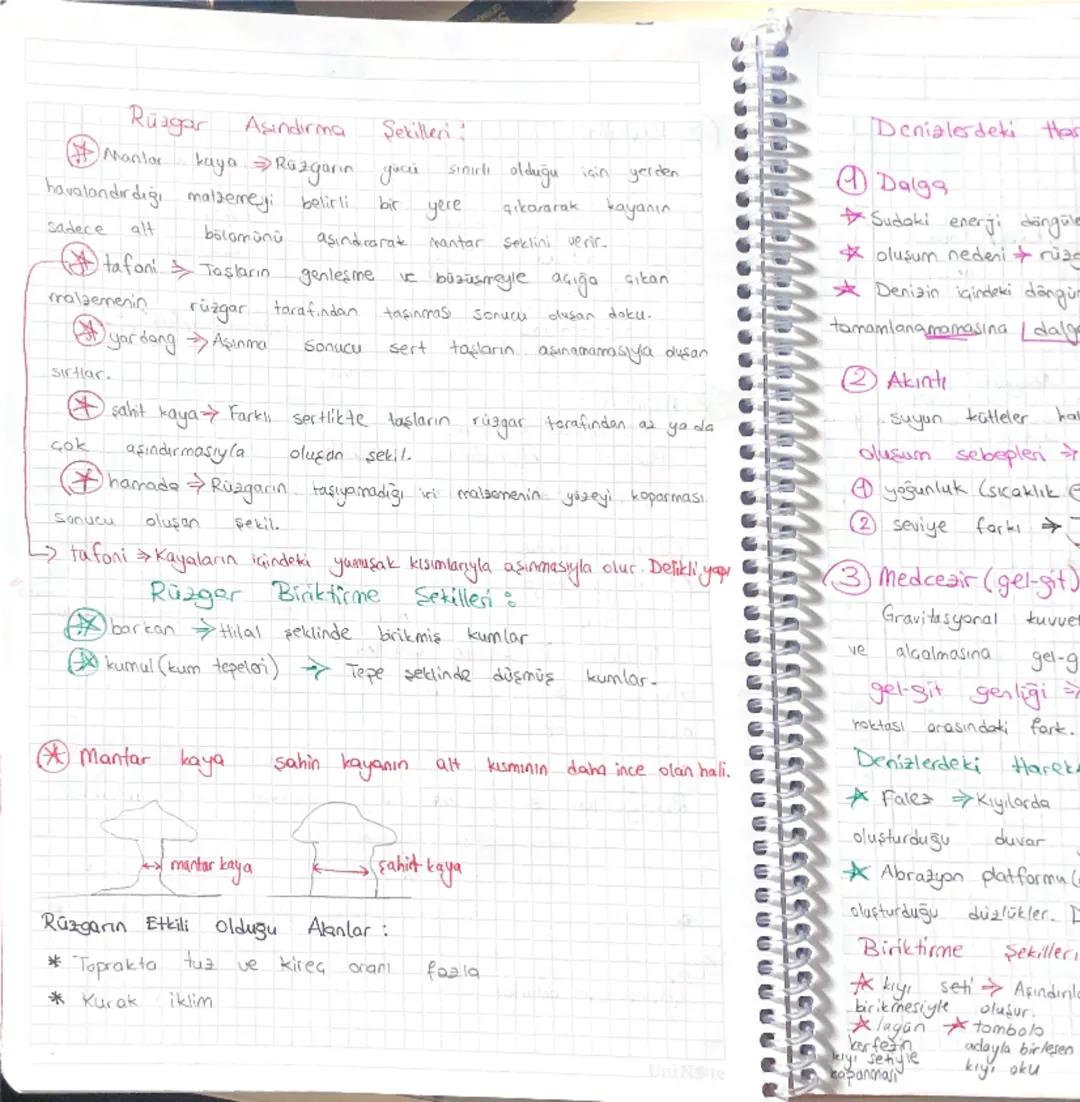 Rüzgar Aşındırma Şekilleri:
Mantar kaya ⇒ Rüzgarın gücü sınırlı olduğu için yerden
havalandırdığı malzemeyi belirli bir yere çıkararak kayanın
sadece alt bölümünü aşındırarak mantar şeklini verir.
tafoni ⇒ Taşların genleşme ve büzüşmeyle açığa çıkan
malzemenin rüzgar tarafından taşınması sonucu oluşan doku.
yardang → Aşınma sonucu sert taşların aşınamamasıyla oluşan
sırtlar.
şahit kaya → Farklı sertlikte taşların rüzgar tarafından az ya da
çok aşındırmasıyla oluşan şekil.
hamada ⇒ Rüzgarın taşıyamadığı iri malzemenin yüzeyi koparması
sonucu oluşan şekil.
→ tafoni ⇒ Kayaların içindeki yumuşak kısımlarıyla aşınmasıyla olur. Delikli yapı
Rüzgar Biriktirme Şekilleri:
barkan ⇒ Hilal şeklinde birikmiş kumlar
kumul (kum tepeleri) → Tepe şeklinde düşmüş kumlar.
Mantar kaya şahin kayanın alt kısmının daha ince olan hali.
mantar kaya
şahit kaya
Rüzgarın Etkili Olduğu Alanlar:
* Toprakta tuz ve kireç oranı fazla
* Kurak iklim
UniNote
Denizlerdeki
1 Dalga
Sudaki enerji
oluşum nedeni →
Denizin içindeki
tamamlanamamasına
2 Akıntı
suyun kütleler
oluşum sebepleri ⇒
1 yoğunluk (sıcaklık
2 seviye farkı ⇒
3 Medcezir (gel-git)
Gravitasyonal
ve alçalmasına
gel-git genliği ⇒
noktası arasındaki fark.
Denizlerdeki
Falez ⇒ Kıyılarda
oluşturduğu duvar
Abrazyon platformu
oluşturduğu düzlükler.
Biriktirme Şekilleri
kıyı seti ⇒
birikmesiyle oluşur.
lagün
körfezin
kıyı setiyle
kapanması
tombolo
adayla birleşen
kıyı oku